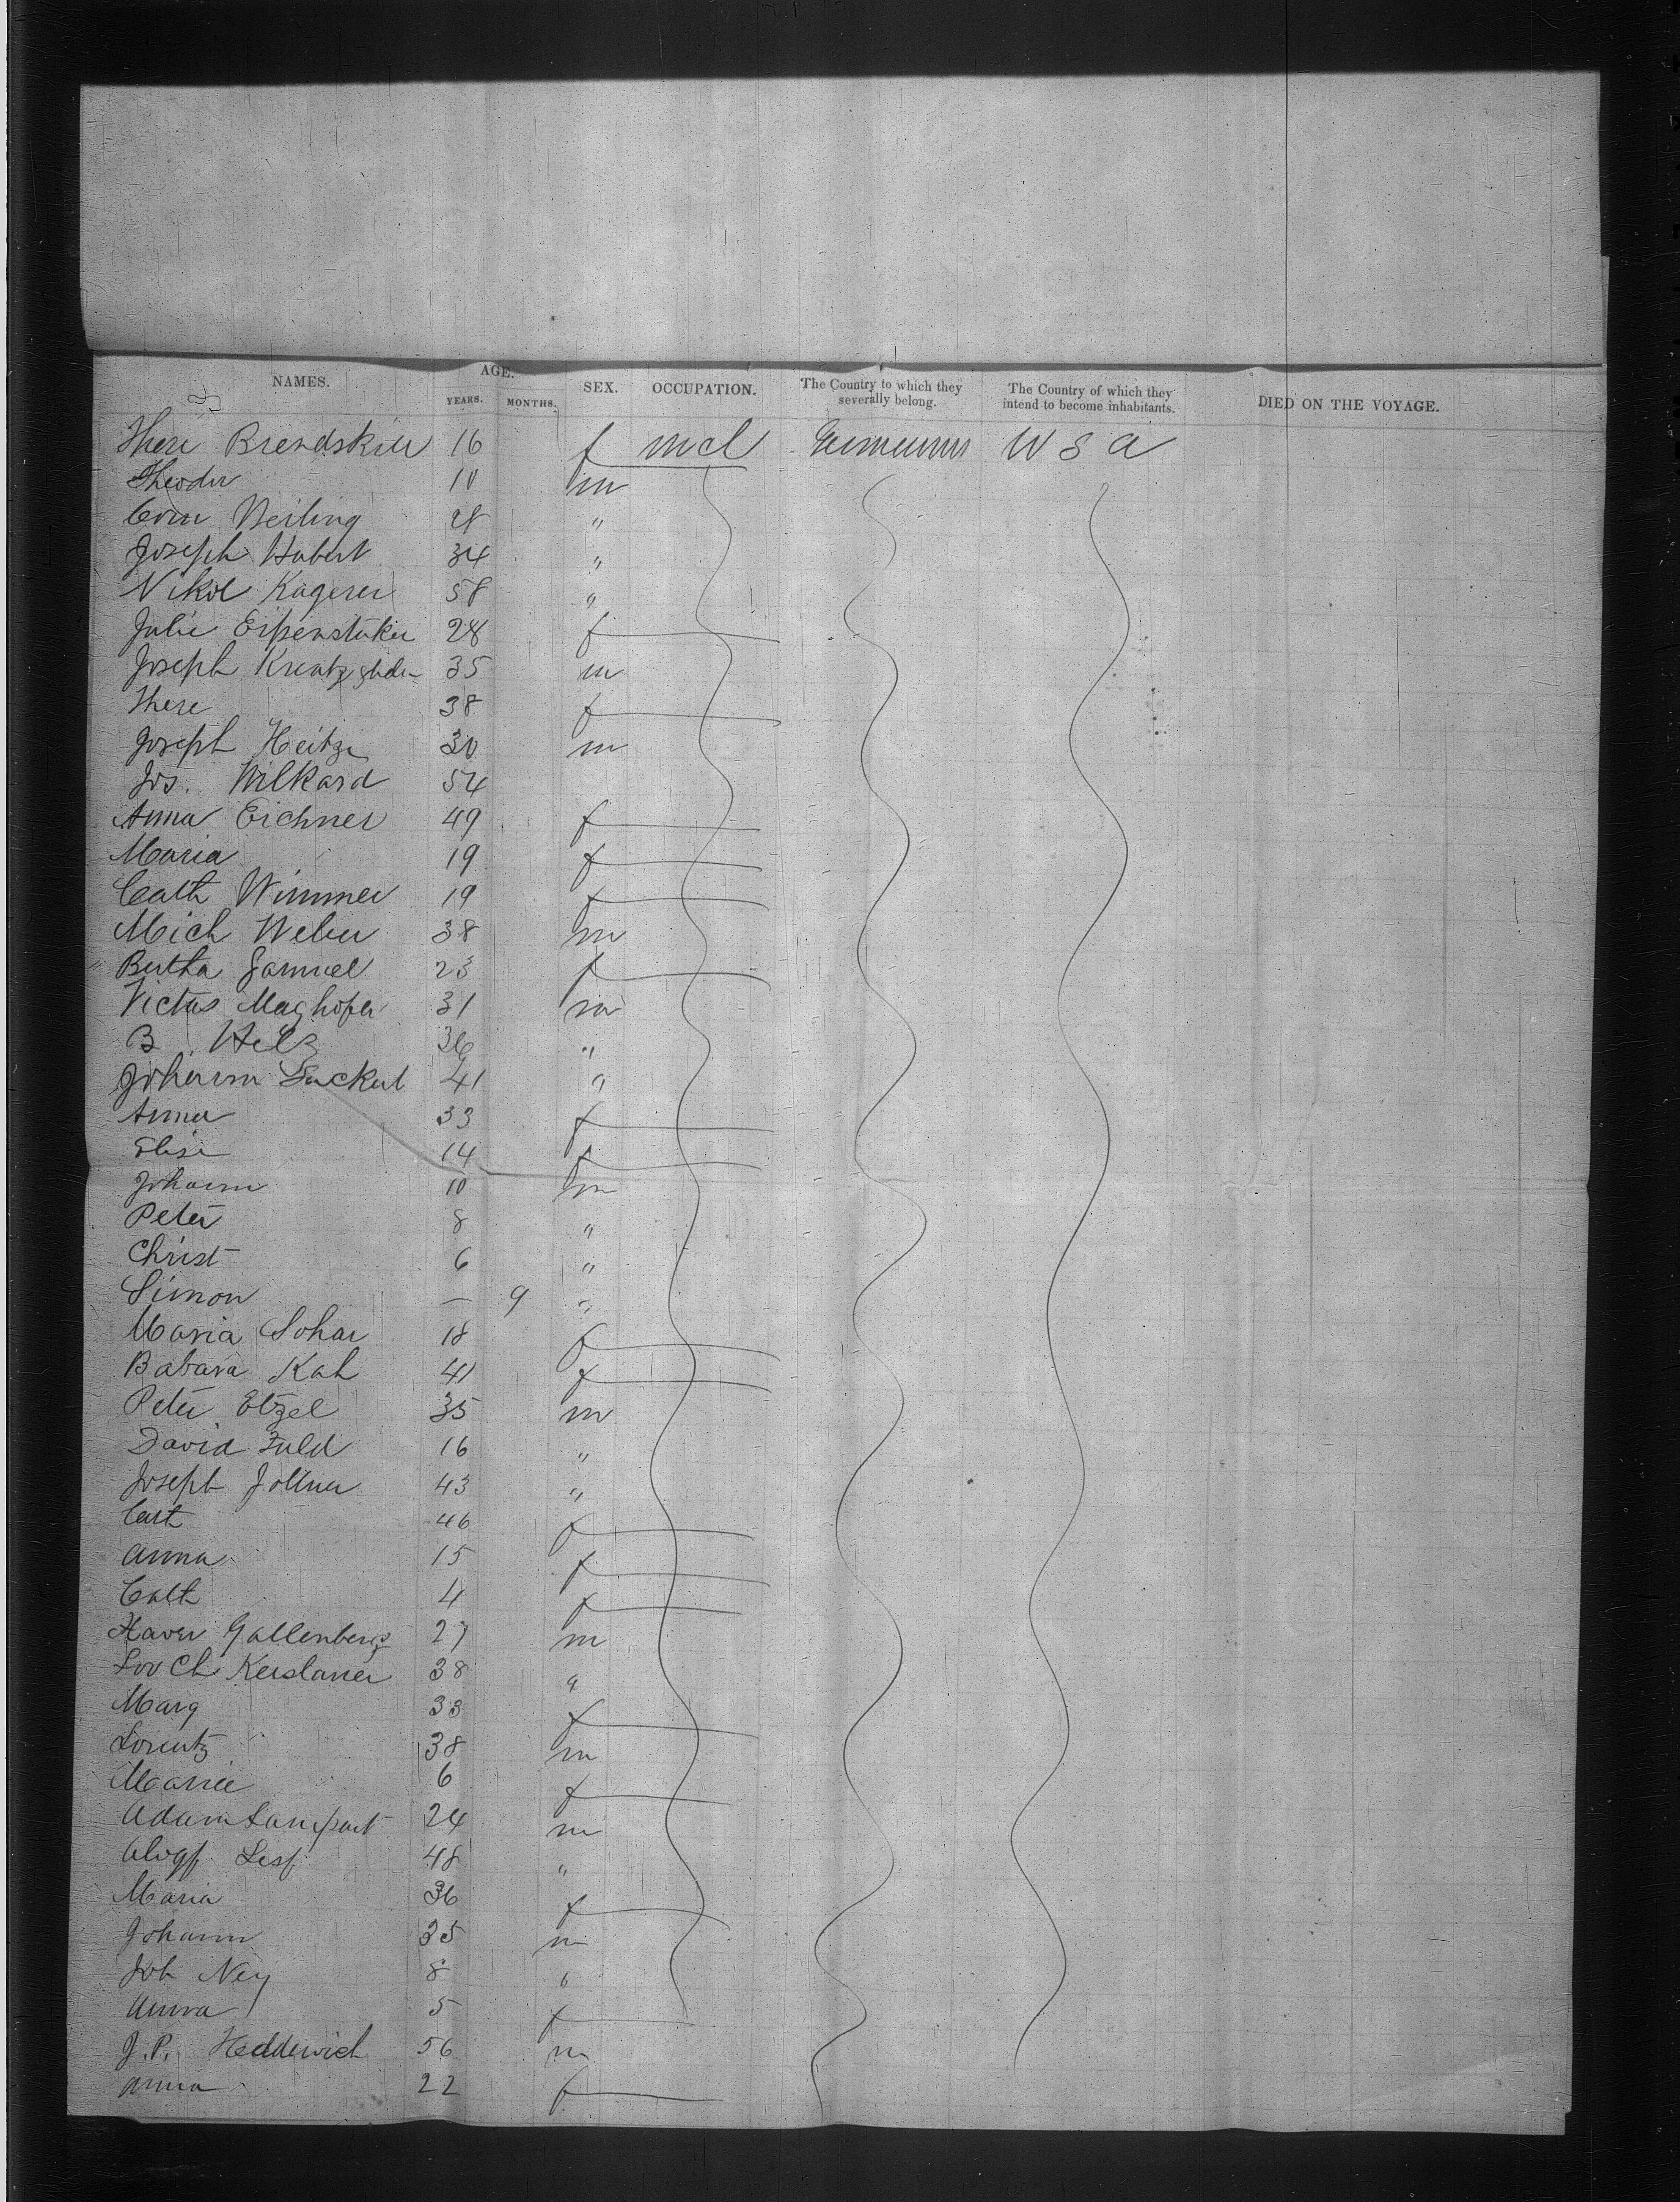 NAMES. AGE. SEX. OCCUPATION. The Country to which they severally belong. The Country of which they intend to become inhabitants. DIED ON THE VOYAGE.
YEARS. MONTHS.
There 16 f U S A
Theodor 10 m
28 "
Joseph Hubert 34 "
Nikol Kagerer 58 "
Julie 28 f
Joseph 35 m
There 38 f
Joseph Heitz 30 m
Jos. Wilkard 54
Anna Eichner 49 f
Maria 19 f
Cath Wimmer 19 f
Mich Weber 38 m
Bertha Samuel 23 f
Victus Maghofer 31 m
B. 36 "
Johann 41 "
Anna 33 f
Elise 14 f
Johann 10 m
Peter 8 "
Christ 6 "
Simon — 9 "
Maria 18 f
Babara Kah 41 f
Peter Etzel 35 m
David Fuld 16 "
Joseph 43 "
Cath 46 f
Anna 15 f
Cath 4 f
Xaver Gallenberg 27 m
38 "
Marg 33 f
Lorentz 38 m
Marie 6 f
Adam 24 m
48 "
Maria 36 f
Johann 35 m
Joh Ney 8 "
Anna 5 f
J. P. Hedderich 56 m
Anna 22 f